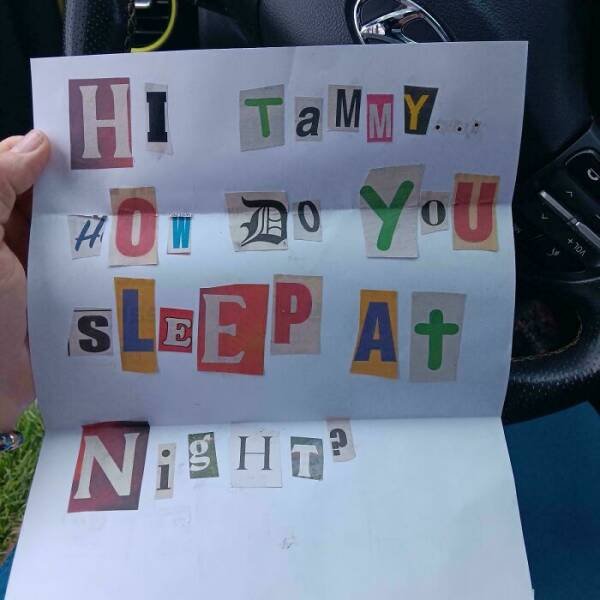 HI TaMMY...
HOW DO YOU
SLEEP At
NigHT?
VOL +